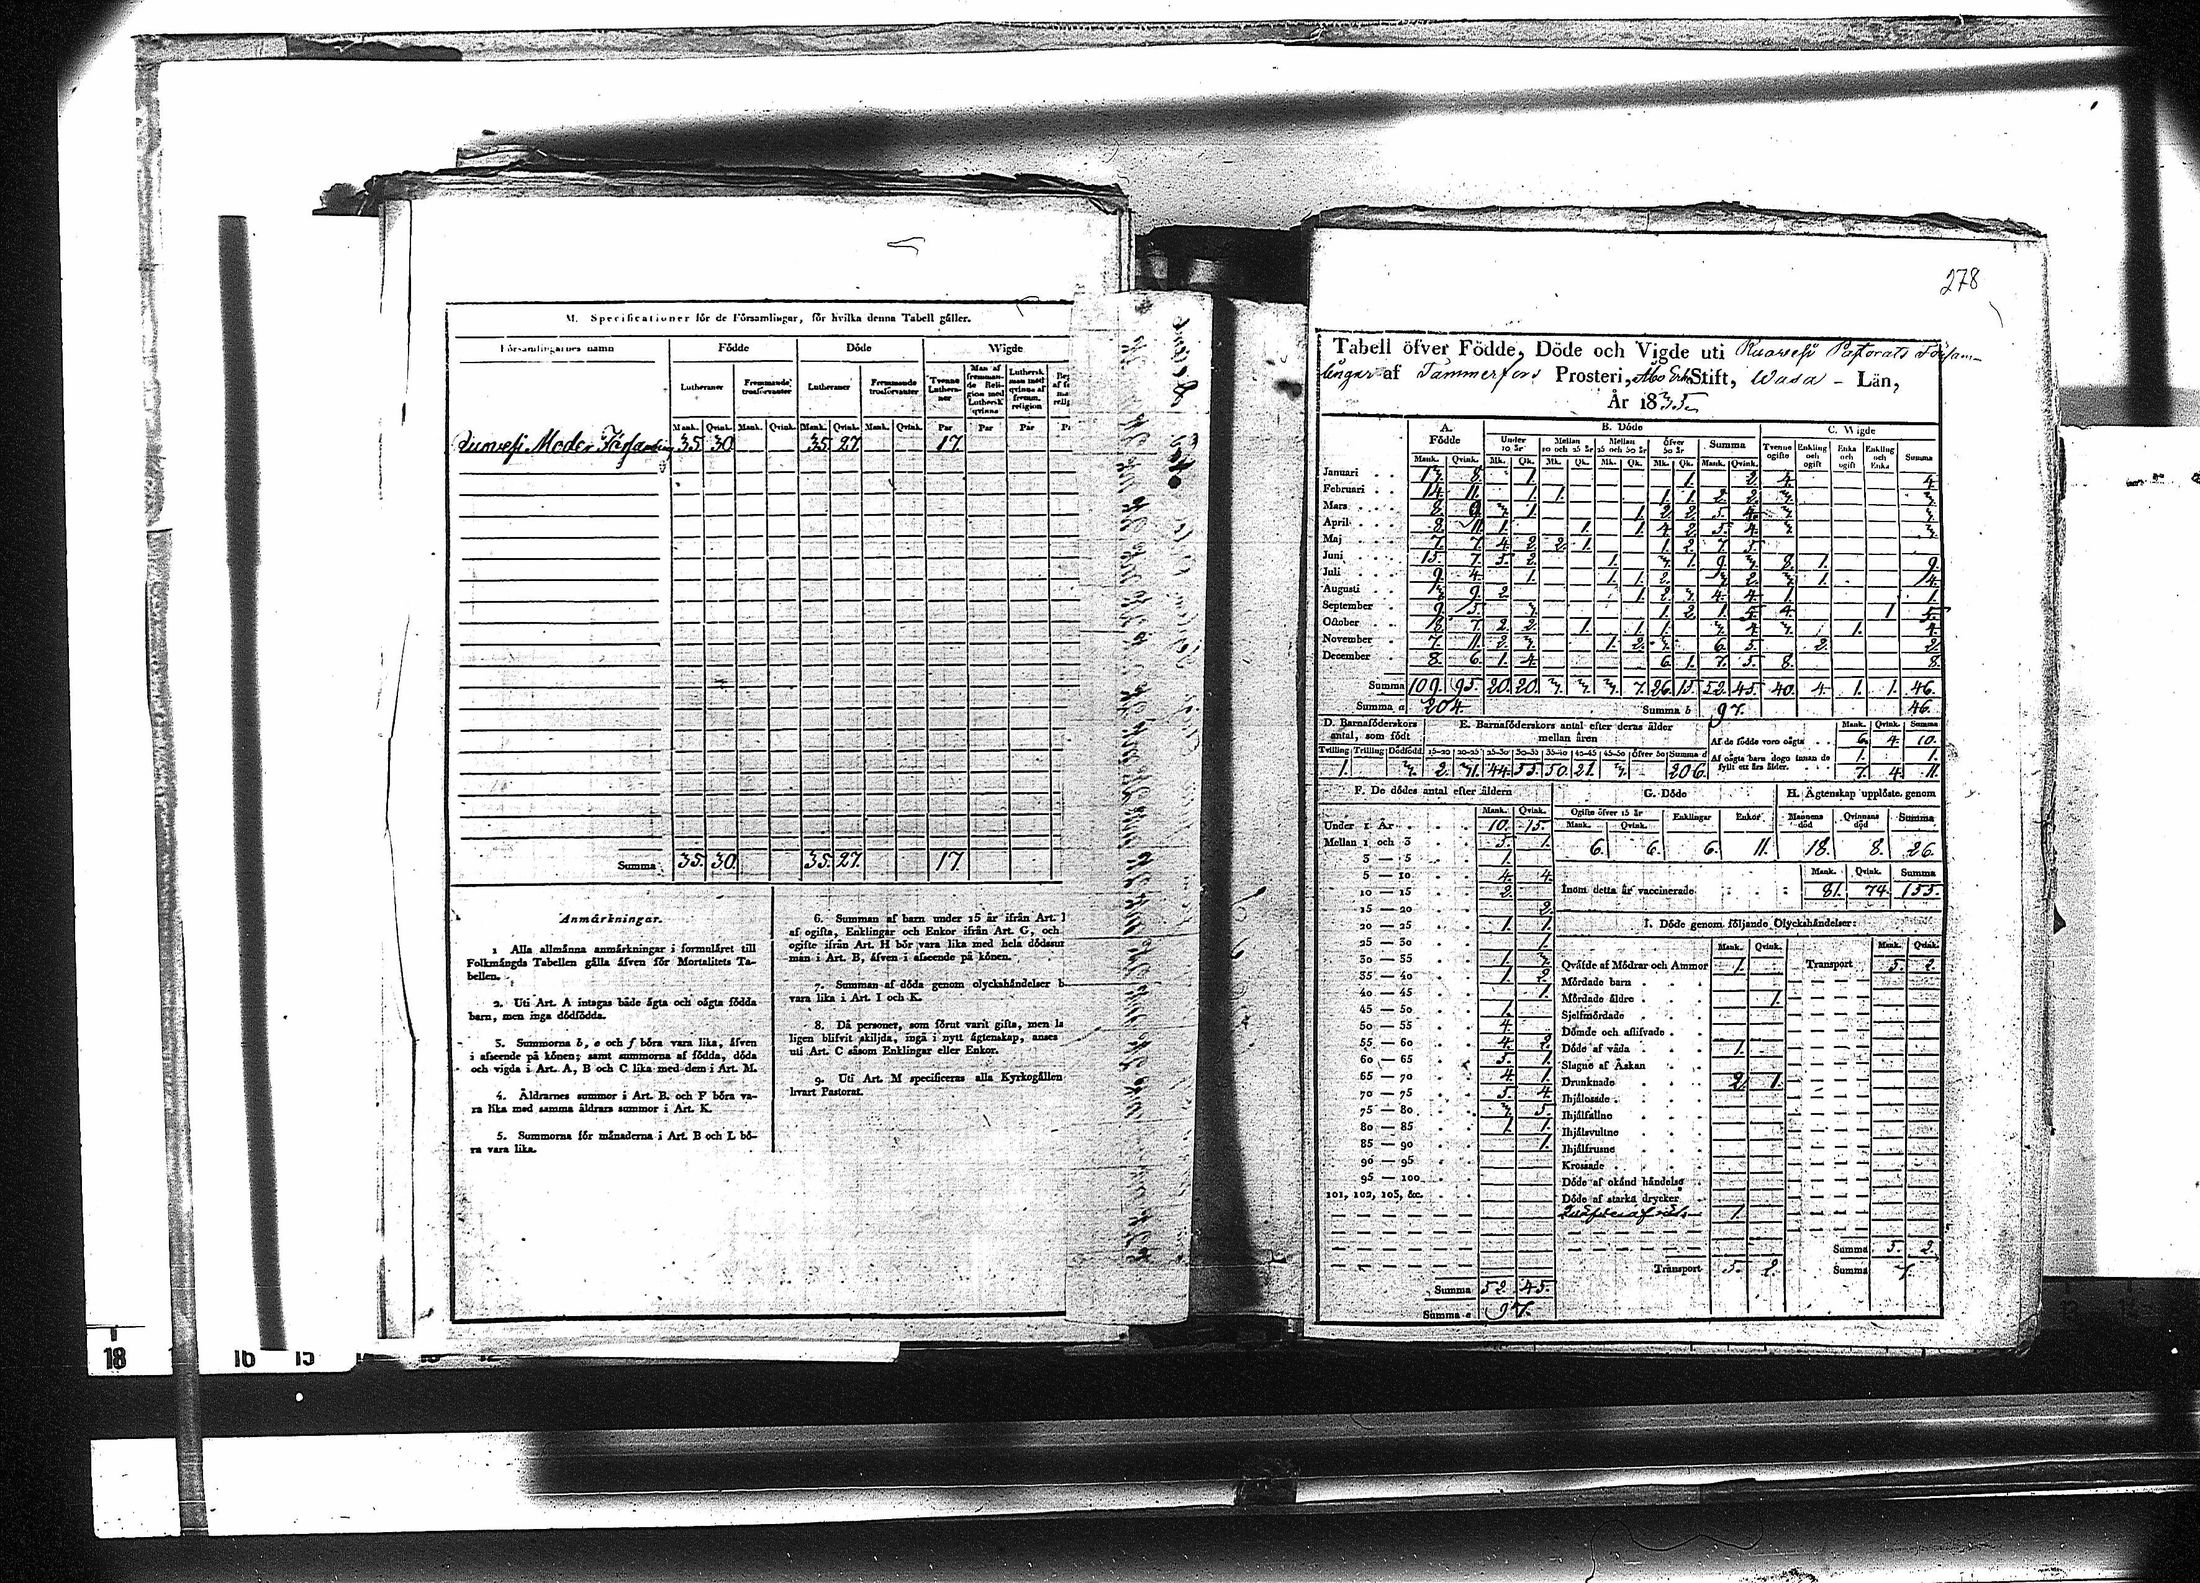 M. Specificationer för de Församlingar, för hvilka denna Tabell gäller.
Församlingarnes namn Födde Döde Wigde
Lutheraner Fremmande trosförvanter Lutheraner Fremmande trosförvanter Tvenne Lutheraner Man af fremmande Religion med Luthersk qvinna Luthersk man med qvinna af fremm. religion
Mank. Qvink. Mank. Qvink. Mank. Qvink. Mank. Qvink. Par Par Par
Ruovesi Moder Församling 35. 30 35. 27. 17.
Summa 35. 30 35. 27. 17.
Anmärkningar.
1 Alla allmänna anmärkningar i formuläret till
Folkmängds Tabellen gälla äfven för Mortalitets Ta-
bellen.
2. Uti Art. A intagas både ägta och oägta födda
barn, men inga dödfödda.
3. Summorna b, e och f böra vara lika, äfven
i afseende på könen; samt summorna af födda, döda
och vigda i Art. A, B och C lika med dem i Art. M.
4. Åldrarnes summor i Art. B. och F böra va-
ra lika med samma åldrars summor i Art. K.
5. Summorna för månaderna i Art. B och L bö-
ra vara lika.
6. Summan af barn under 15 år ifrån Art.
af ogifta, Enklingar och Enkor ifrån Art. G, och
ogifte ifrån Art. H bör vara lika med hela dödssum
man i Art. B, äfven i afseende på könen.
7. Summan af döda genom olyckshändelser b
vara lika i Art. I och K.
8. Då personer, som förut varit gifta, men la
ligen blifvit skiljda, ingå i nytt ägtenskap, anses
uti Art. C såsom Enklingar eller Enkor.
9. Uti Art. M specificeras alla Kyrkogällen
hvart Pastorat.
278
Tabell öfver Födde, Döde och Vigde uti Ruovesi Pastorats Församlingar af Tammerfors Prosteri, Åbo Erke Stift, Wasa - Län,
År 1835
A. Födde B. Döde C. Wigde
Under 10 år Mellan 10 och 25 år Mellan 25 och 50 år Öfver 50 år Summa Tvenne ogifte Enkling och ogift Enka och ogift Enkling och Enka Summa
Mank. Qvink. Mk. Qk. Mk. Qk. Mk. Qk. Mk. Qk. Mank. Qvink.
Januari 8. 1. 1. 2. 4. 4.
Februari 14. 11. 1. 1. 1. 1. 2. 2. 3. 3.
Mars 8. 9. 3. 1. 1. 2. 2. 5. 4. 3. 3.
April 8. 11. 1. 1. 1. 4. 2. 5. 4. 3. 3.
Maj 7. 7. 4. 2. 2. 1. 1. 2. 7. 5.
Juni 15. 7. 5. 2. 1. 3. 1. 9. 3. 8. 1. 9.
Juli 9. 4. 1. 1. 1. 2. 3. 2. 3. 1. 4.
Augusti 9. 2. 1. 2. 3. 4. 4. 1. 1.
September 9. 5. 3. 1. 2. 1. 5. 4. 1 5.
October 7. 2. 2. 1. 1. 1. 3. 4. 3. 1. 4.
November 7. 11. 2. 3. 1. 2. 3. 6. 5. 2. 2.
December 8. 6. 1. 4. 6. 1. 7. 5. 8. 8.
Summa 109. 95. 20. 20. 3. 3. 3. 7. 26. 15. 52. 45. 40. 4. 1. 1. 46.
Summa a 204. Summa b 97. 46.
D. Barnaföderskors antal, som födt E. Barnaföderskors antal efter deras ålder mellan åren
Mank. Qvink. Summa
Af de födde voro oägta 6. 4. 10.
Tvilling Trilling Dödfödd 15—20 20—25 25—30 30—35 35—40 40—45 45—50 Öfver 50 Summa d
Af oägta barn dogo innan de fyllt ett års ålder. 1. 1.
1. 3. 2. 31. 44. 55. 50. 21. 3. 206. 7. 4. 11.
F. De dödes antal efter åldern
Mank. Qvink.
Under 1 År 10. 15.
Mellan 1 och 3 5. 1.
3 — 5 1.
5 — 10 4. 4.
10 — 15 2.
15 — 20 2.
20 — 25 1. 1.
25 — 30 1.
30 — 35 1. 3.
35 — 40 1. 2.
40 — 45 1.
45 — 50 1.
50 — 55 4.
55 — 60 4. 2.
60 — 65 5. 1.
65 — 70 4. 1.
70 — 75 5. 4.
75 — 80 3. 5.
80 — 85 1. 1.
85 — 90 1.
90 — 95
95 — 100
101, 102, 103, &c.
Summa 52. 45.
Summa e 97.
G. Döde
Ogifte öfver 15 år Enklingar Enkor
Mank. Qvink.
6. 6. 6. 11.
H. Ägtenskap upplöste genom
Mannens död Qvinnans död Summa
18. 8. 26.
Mank. Qvink. Summa
Inom detta år vaccinerade 81. 74. 155.
I. Döde genom följande Olyckshändelser:
Mank. Qvink. Mank. Qvink.
Qväfde af Mödrar och Ammor 1. Transport 5. 2.
Mördade barn
Mördade äldre 1.
Sjelfmördade
Dömde och aflifvade
Döde af våda 1.
Slagne af Åskan
Drunknade 2. 1.
Ihjälosade
Ihjälfallne
Ihjälsvultne
Ihjälfrusne
Krossade
Döde af okänd händelse
Döde af starka drycker
1.
Summa 5. 2.
Transport 5. 2. Summa 7.
18 16 15